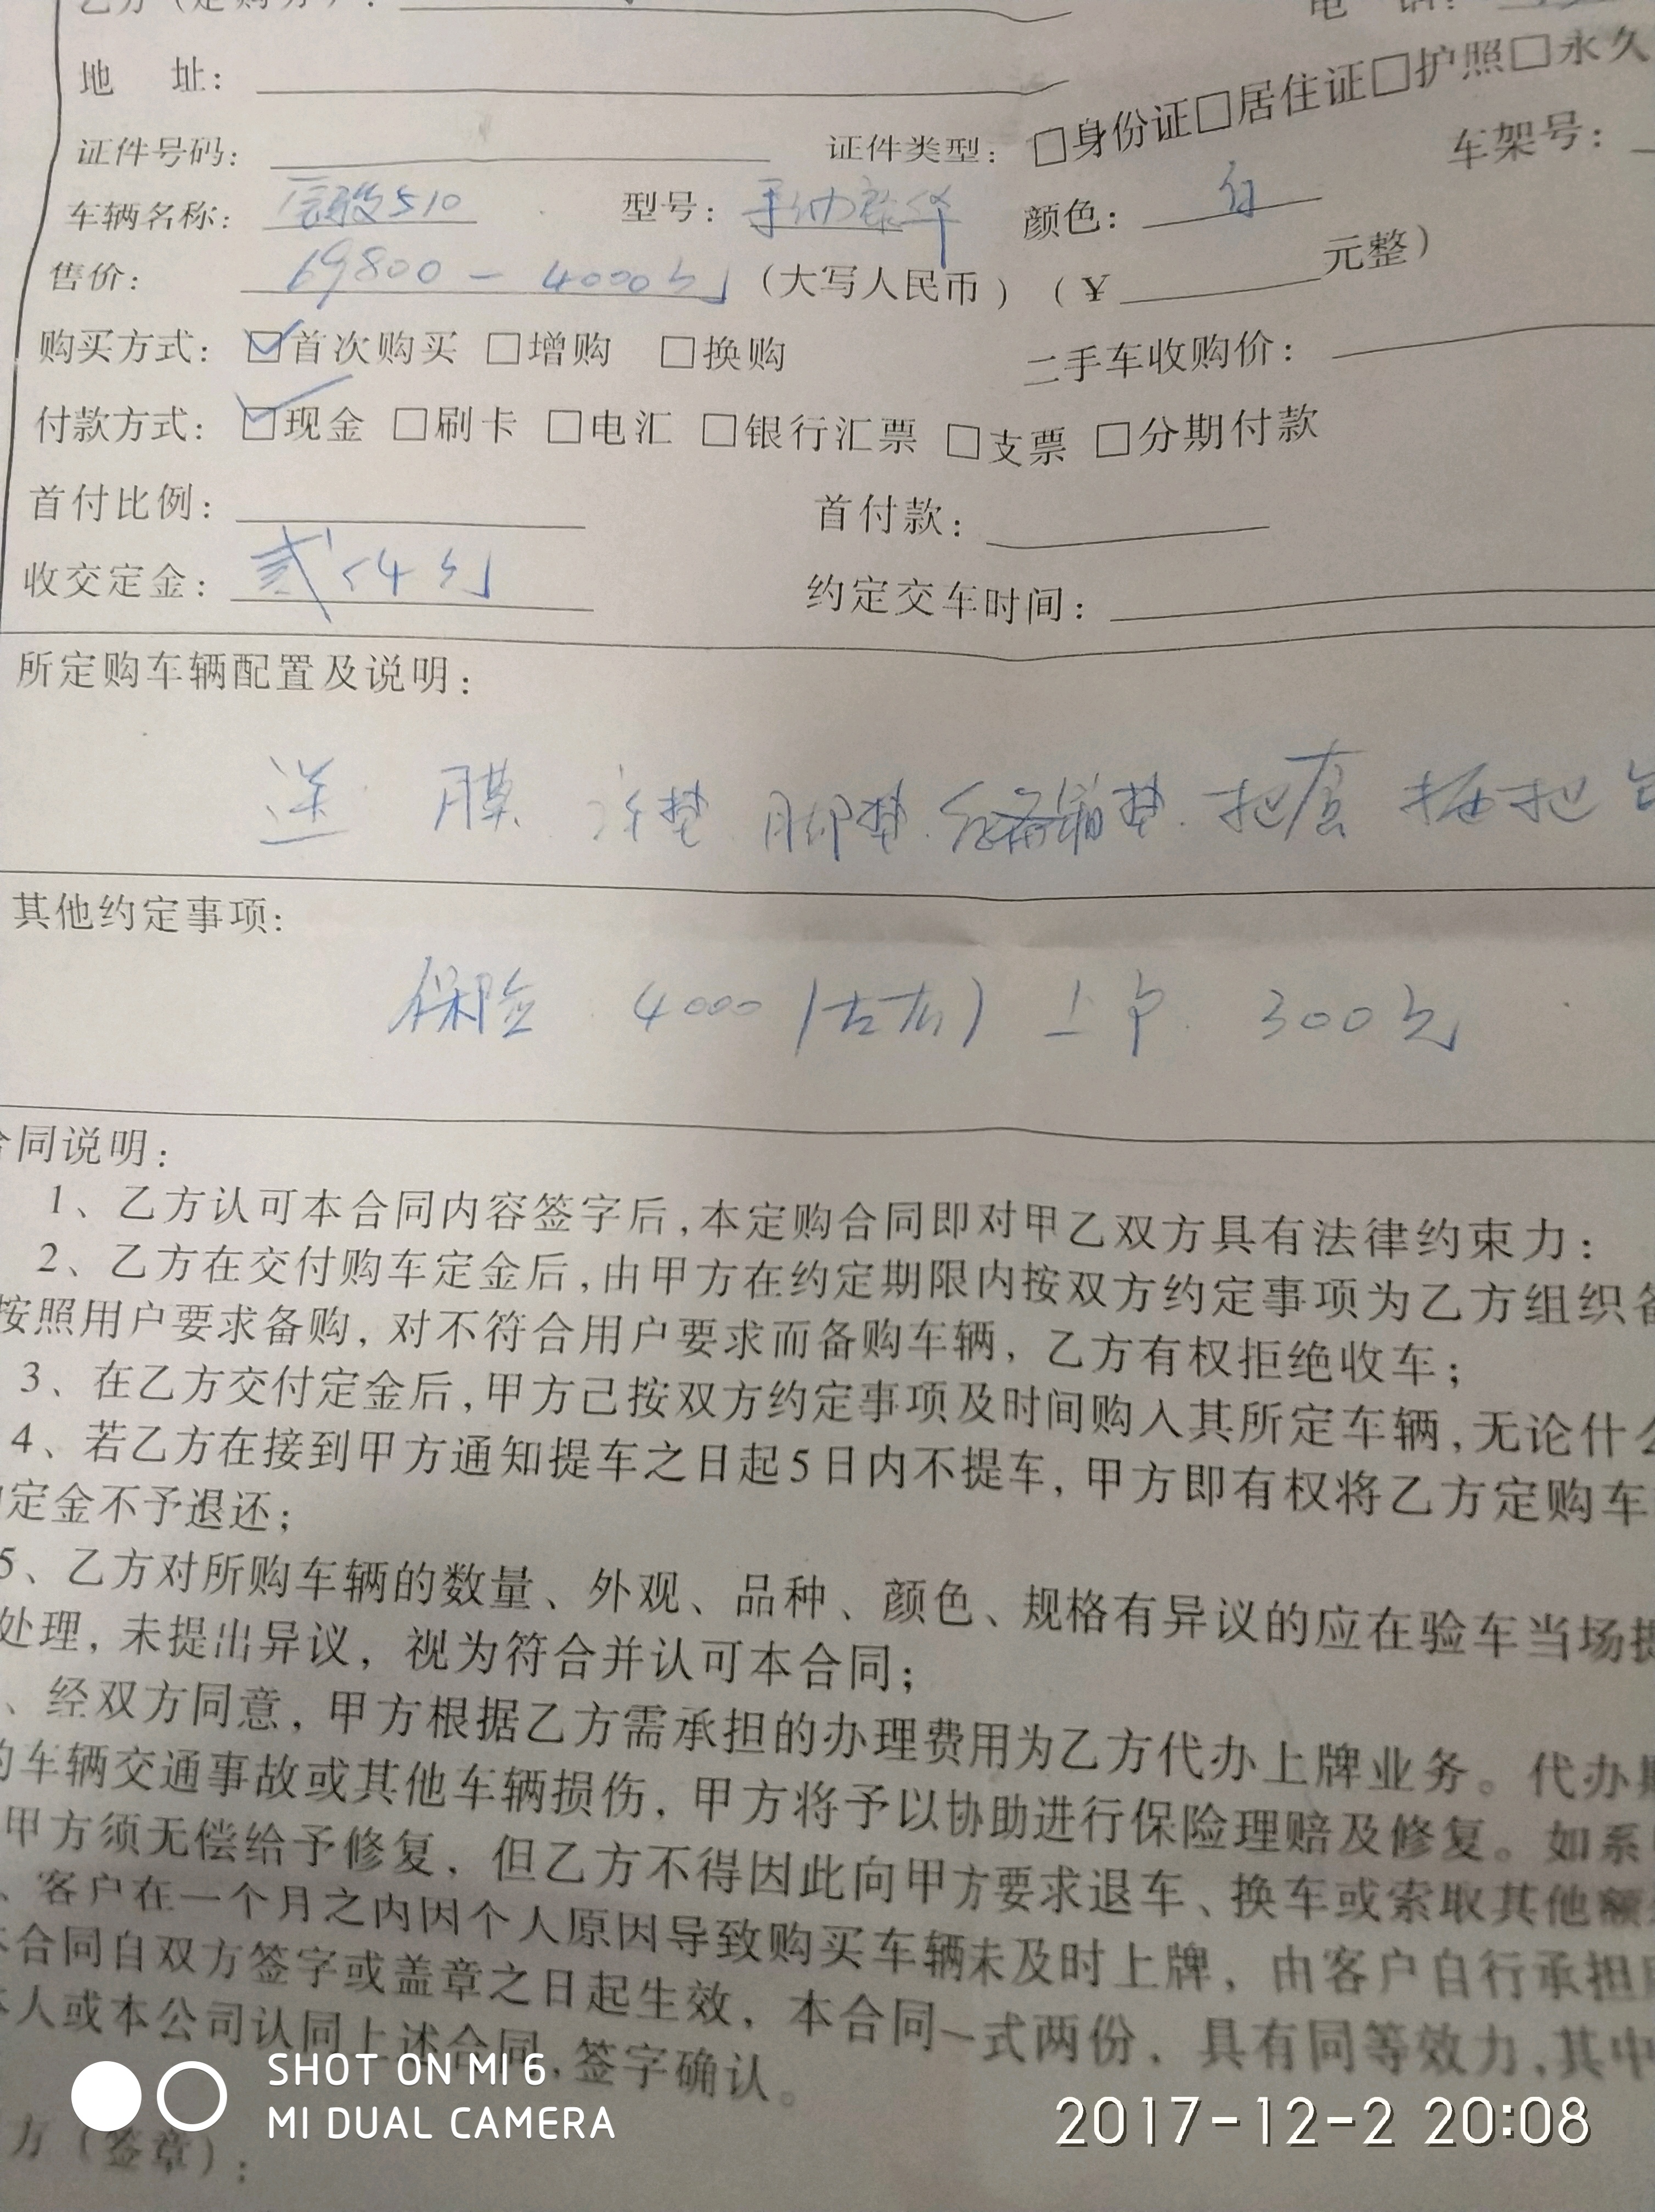 乙方（定购方）：
电 话：
地 址：
证件号码： 证件类型：□身份证□居住证□护照□永久
车辆名称：宝骏510 型号：手动豪华 颜色：白 车架号：
售价：69800-4000元（大写人民币）（¥ 元整）
购买方式：☑首次购买 □增购 □换购 二手车收购价：
付款方式：☑现金 □刷卡 □电汇 □银行汇票 □支票 □分期付款
首付比例： 首付款：
收交定金：贰 约定交车时间：
所定购车辆配置及说明：
送 膜 脚垫 后备箱垫 把套
其他约定事项：
保险 4000（左右） 上户 300元
合同说明：
1、乙方认可本合同内容签字后，本定购合同即对甲乙双方具有法律约束力：
2、乙方在交付购车定金后，由甲方在约定期限内按双方约定事项为乙方组织备
按照用户要求备购，对不符合用户要求而备购车辆，乙方有权拒绝收车；
3、在乙方交付定金后，甲方已按双方约定事项及时间购入其所定车辆，无论什么
4、若乙方在接到甲方通知提车之日起5日内不提车，甲方即有权将乙方定购车
定金不予退还；
5、乙方对所购车辆的数量、外观、品种、颜色、规格有异议的应在验车当场提
处理，未提出异议，视为符合并认可本合同；
、经双方同意，甲方根据乙方需承担的办理费用为乙方代办上牌业务。代办期
的车辆交通事故或其他车辆损伤，甲方将予以协助进行保险理赔及修复。如系
甲方须无偿给予修复，但乙方不得因此向甲方要求退车、换车或索取其他额
、客户在一个月之内因个人原因导致购买车辆未及时上牌，由客户自行承担
本合同自双方签字或盖章之日起生效，本合同一式两份，具有同等效力，其中
本人或本公司认同上述合同，签字确认。
方（签章）：
SHOT ON MI 6
MI DUAL CAMERA
2017-12-2 20:08